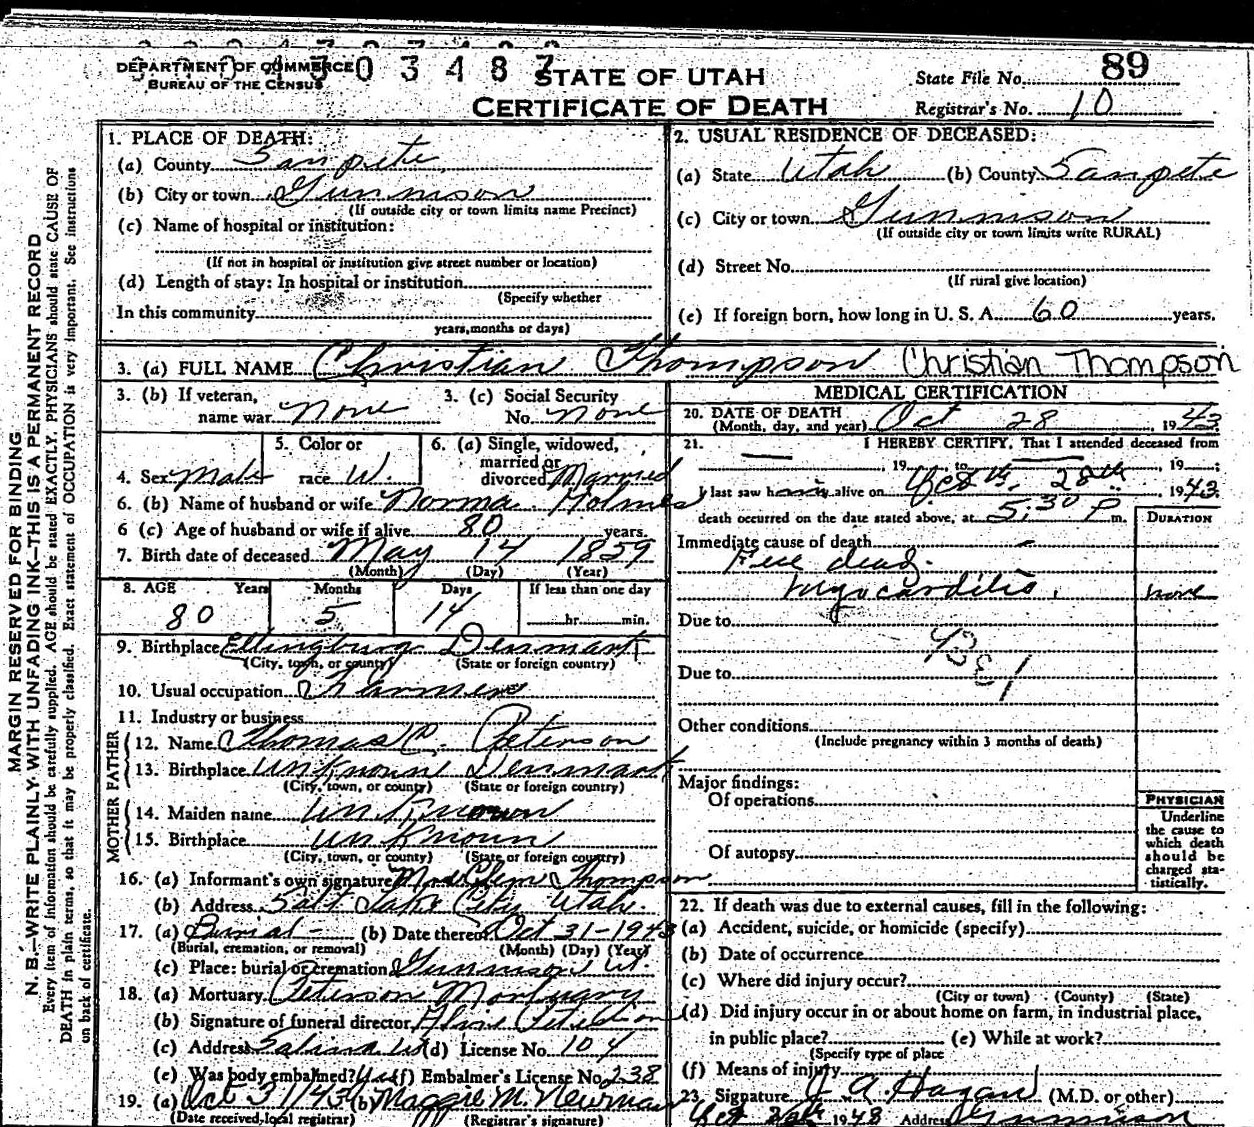 DEPARTMENT OF COMMERCE
BUREAU OF THE CENSUS
4303487
STATE OF UTAH
CERTIFICATE OF DEATH
State File No. 89
Registrar's No. 10
MARGIN RESERVED FOR BINDING
N. B.—WRITE PLAINLY WITH UNFADING INK—THIS IS A PERMANENT RECORD
Every item of information should be carefully supplied. AGE should be stated EXACTLY. PHYSICIANS should state CAUSE OF
DEATH in plain terms, so that it may be properly classified. Exact statement of OCCUPATION is very important. See instructions
on back of certificate.
1. PLACE OF DEATH:
(a) County Sanpete
(b) City or town Gunnison
(If outside city or town limits name Precinct)
(c) Name of hospital or institution:
(If not in hospital or institution give street number or location)
(d) Length of stay: In hospital or institution
(Specify whether
In this community
years, months or days)
2. USUAL RESIDENCE OF DECEASED:
(a) State Utah (b) County Sanpete
(c) City or town Gunnison
(If outside city or town limits write RURAL)
(d) Street No.
(If rural give location)
(e) If foreign born, how long in U. S. A. 60 years.
3. (a) FULL NAME Christian Thompson Christian Thompson
3. (b) If veteran, name war None
3. (c) Social Security No. None
4. Sex Male
5. Color or race W.
6. (a) Single, widowed, married or divorced Married
6. (b) Name of husband or wife Norma Holmes
6 (c) Age of husband or wife if alive 80 years.
7. Birth date of deceased May 14 1859
(Month) (Day) (Year)
8. AGE Years Months Days If less than one day
80 5 14 hr. min.
9. Birthplace Denmark
(City, town, or county) (State or foreign country)
10. Usual occupation Farmer
11. Industry or business
FATHER
12. Name Thomas P. Peterson
13. Birthplace unknown Denmark
(City, town, or county) (State or foreign country)
MOTHER
14. Maiden name unknown
15. Birthplace unknown
(City, town, or county) (State or foreign country)
16. (a) Informant's own signature Clem Thompson
(b) Address Salt Lake City Utah
17. (a) Burial (b) Date thereof Oct 31-1943
(Burial, cremation, or removal) (Month) (Day) (Year)
(c) Place: burial or cremation Gunnison Ut.
18. (a) Mortuary Peterson Mortuary
(b) Signature of funeral director
(c) Address Salina Ut (d) License No. 104
(e) Was body embalmed? Yes (f) Embalmer's License No. 238
19. (a) Oct 31/43 (b) Maggie M. Newman
(Date received local registrar) (Registrar's signature)
MEDICAL CERTIFICATION
20. DATE OF DEATH
(Month, day, and year) Oct 28, 1943
21. I HEREBY CERTIFY, That I attended deceased from
, 19 , to , 19 ;
I last saw him alive on 28th, 1943
death occurred on the date stated above, at 5:30 P m.
DURATION
Immediate cause of death
dead.
Myocarditis. none
Due to
Due to
Other conditions
(Include pregnancy within 3 months of death)
Major findings:
Of operations
Of autopsy
PHYSICIAN
Underline
the cause to
which death
should be
charged sta-
tistically.
22. If death was due to external causes, fill in the following:
(a) Accident, suicide, or homicide (specify)
(b) Date of occurrence
(c) Where did injury occur?
(City or town) (County) (State)
(d) Did injury occur in or about home on farm, in industrial place,
in public place? (e) While at work?
(Specify type of place
(f) Means of injury
23. Signature J. A. Hagan (M.D. or other)
1943 Address Gunnison